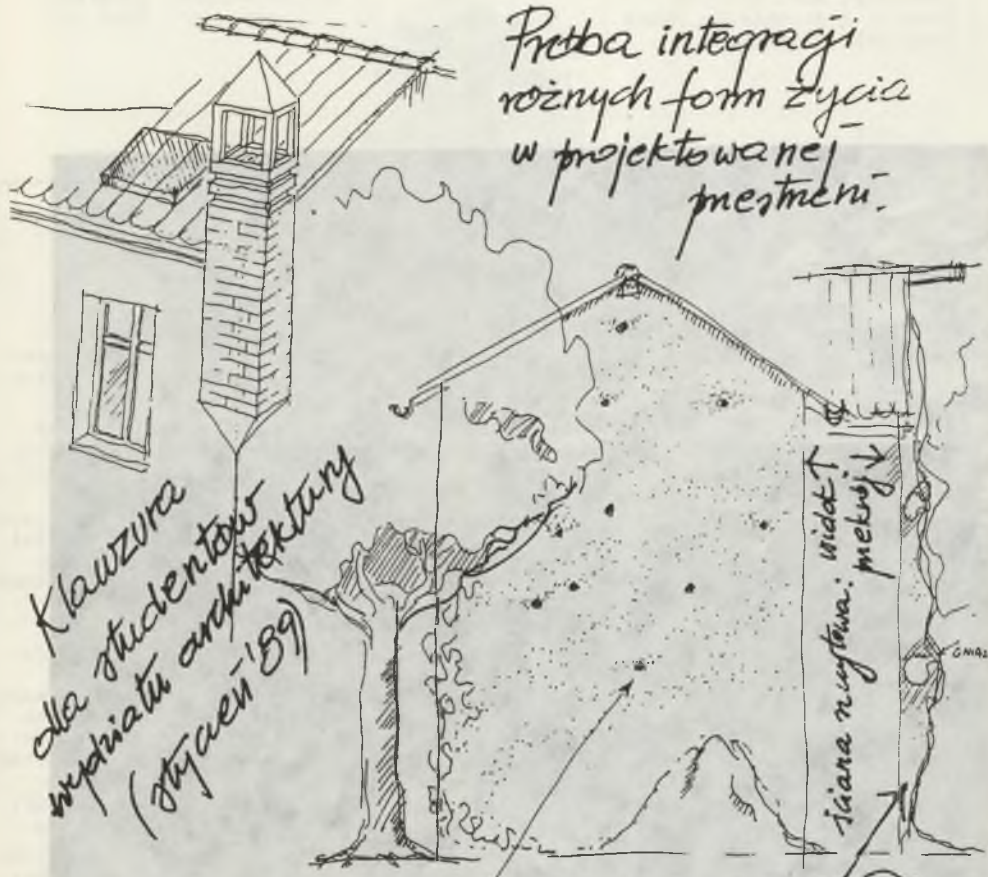 Próba integracji
różnych form życia
w projektowanej
przestrzeni.
Klauzura
dla studentów
wydziału architektury
(styczeń '89)
ściana szczytowa: widok ↑
przekrój ↓
GNIAZ